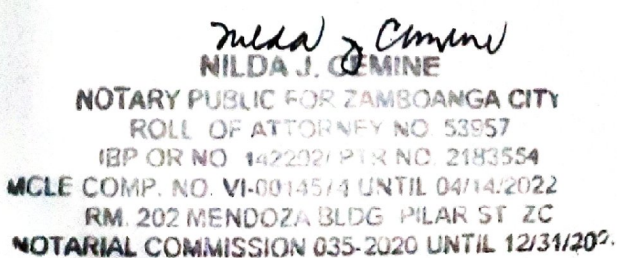 Nilda J. Cemine
NILDA J. CEMINE
NOTARY PUBLIC FOR ZAMBOANGA CITY
ROLL OF ATTORNEY NO. 53957
IBP OR NO 142202/ PTR NO. 2183554
MCLE COMP. NO. VI-0014574 UNTIL 04/14/2022
RM. 202 MENDOZA BLDG PILAR ST ZC
NOTARIAL COMMISSION 035-2020 UNTIL